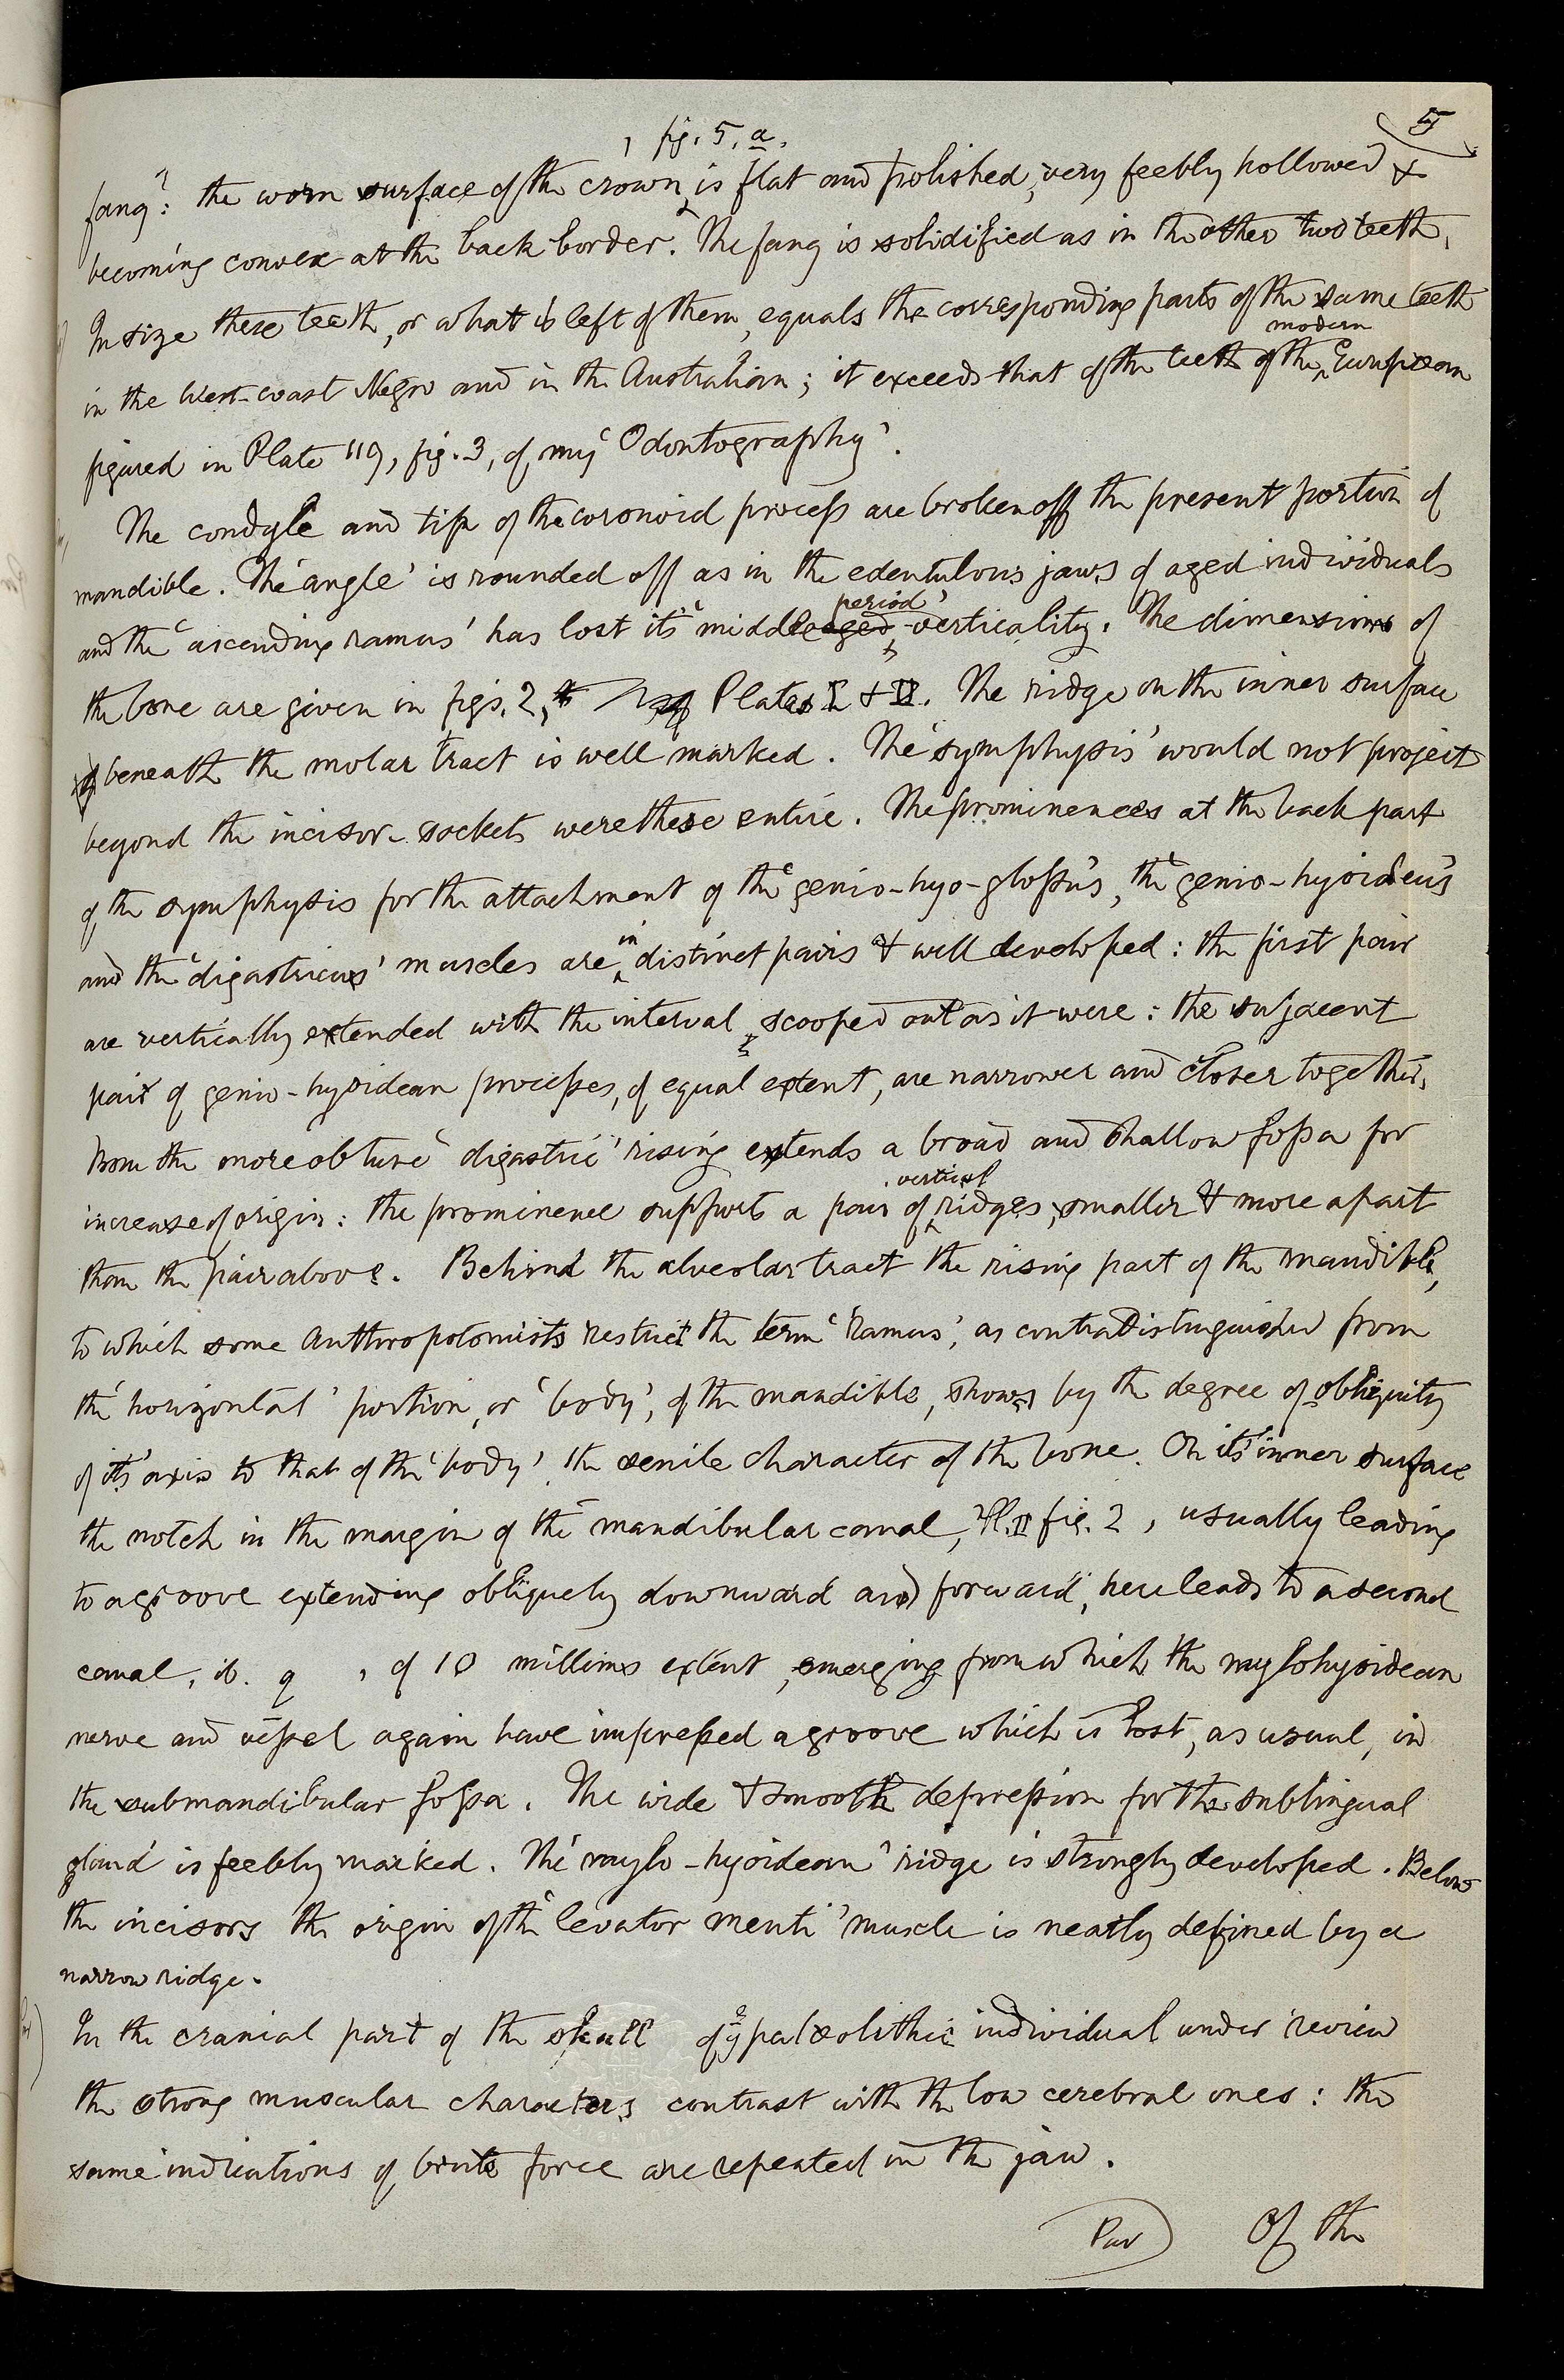 5
, fig. 5, a,
fang': the worn surface of the crown, is flat and polished, very feebly hollowed &
becoming convex at the back border. The fang is solidified as in the other two teeth.
In size these teeth, or what is left of them, equals the corresponding parts of the same teeth
modern
in the West-coast Negro and in the Australian; it exceeds that of the teeth of the European
figured in Plate 119, fig. 3, of my 'Odontography'.
The condyle and tip of the coronoid process are broken off the present portion of
mandible. The 'angle' is rounded off as in the edentulous jaws of aged individuals
period'
and the 'ascending ramus' has lost its 'middle aged verticality. The dimensions of
the bone are given in figs. 2, Plates I & II. The ridge on the inner surface
beneath the molar tract is well marked. The 'symphysis' would not project
beyond the incisor-sockets were these entire. The prominences at the back part
of the symphysis for the attachment of the 'genio-hyo-glossus', the 'genio-hyoideus'
in
and the 'digastricus' muscles are distinct pairs & well developed: the first pair
are vertically extended with the interval scooped out as it were: the subjacent
pair of genio-hyoidean processes, of equal extent, are narrower and closer together.
From the more obtuse 'digastric' rising extends a broad and shallow fossa for
vertical
increase of origin: the prominence supports a pair of ridges, smaller & more apart
than the pair above. Behind the alveolar tract the rising part of the mandible,
to which some Anthropotomists restrict the term 'ramus', as contradistinguished from
the 'horizontal' portion, or 'body', of the mandible, shows by the degree of obliquity
of its axis to that of the 'body' the senile character of the bone. On its inner surface
the notch in the margin of the mandibular canal, Pl. II fig. 2, usually leading
to a groove extending obliquely downward and forward, here leads to a second
canal, ib. q , of 10 millims extent, emerging from which the mylohyoidean
nerve and vessel again have impressed a groove which is lost, as usual, in
the submandibular fossa. The wide & smooth depression for the sublingual
gland is feebly marked. The 'mylo-hyoidean' ridge is strongly developed. Below
the incisors the origin of the 'levator menti' muscle is neatly defined by a
narrow ridge.
In the cranial part of the skull of ye palæolithic individual under review
the strong muscular characters contrast with the low cerebral ones: the
same indications of brute force are repeated in the jaw.
Par) Of the